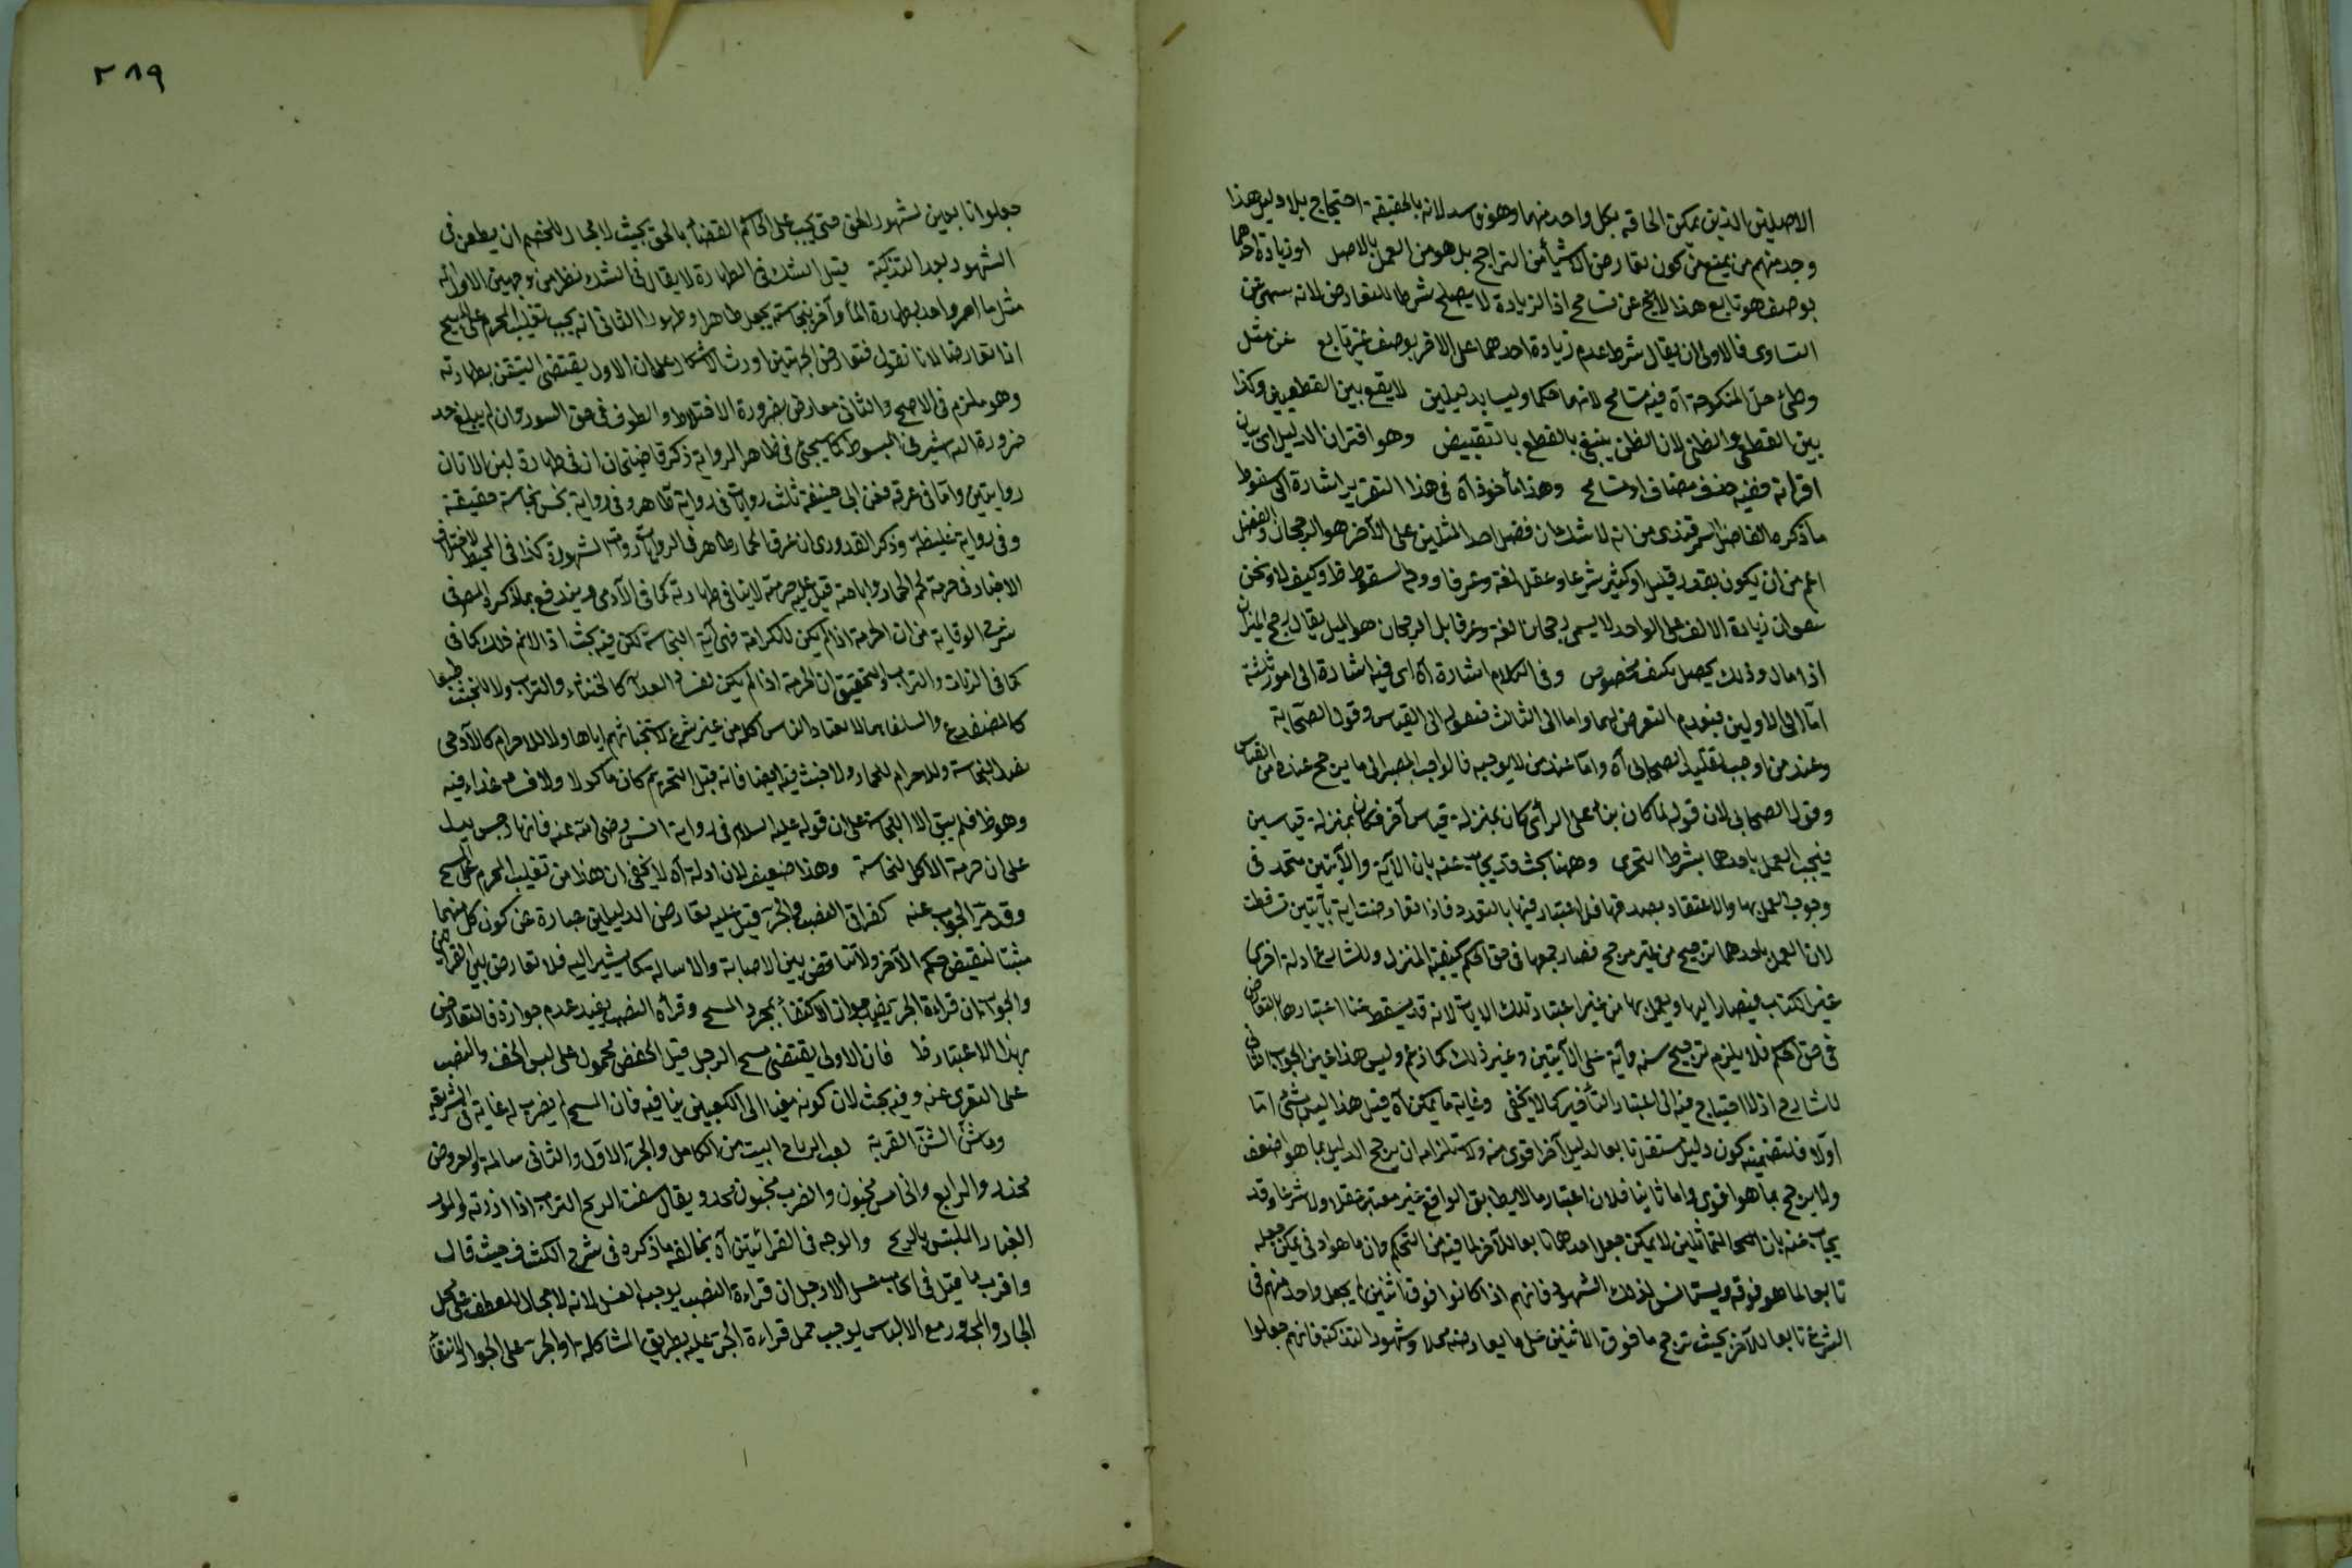 الاصلين الذين يمكن الحاقه بكل واحد منهما وهو فاسد لانه بالحقيقة احتجاج بلا دليل هذا
وجد منهم من يمنع من كون تعارض الاشياء من التراجح بل هو من العمل بالاصل او زيادة احدهما
بوصف هو تابع هذا لا يخ عن تسامح اذ الزيادة لا يصلح شرطا للتعارض لانه
التساوى فالاولى ان يقال شرط عدم زيادة احدهما على الاخر بوصف غير تابع عن مثل
وطئ حل المنكوحة آه فيه تسامح لانهما حكما وليسا بدليلين لا يقع بين القطعيين وكذا
بين القطعى والظنى لان الظن ينتفى بالقطع بالنقيض وهو اقتران الدليل اى بيان
اقترانه ففيه حذف مضاف او تسامح وهذا مأخوذ آه فى هذا التقرير اشارة الى سقوط
ما ذكره الفاضل السمرقندى من انه لا شك ان فضل احد المثلين على الآخر هو الرجحان والفضل
اعم من ان يكون بقدر قليل او كثير شرعا وعقلا لغة وعرفا ووجه السقوط ظ وكيف لا ونحن
زيادة الالف على الواحد لا يسمى رجحانا لغة وعرفا بل الرجحان هو الميل يقال رجح الميزان
اذا مال وذلك يحصل بكيف مخصوص وفى الكلام اشارة آه اى فيه اشارة الى امور ثلثة
امّا الى الاولين فبعدم التعرض لهما واما الى الثالث فبقوله الى القياس وقول الصحابة
وعند من اوجب تقليد الصحابى آه وامّا عند من لا يوجبه فالواجب المصير الى ما يرجح عنده من القياس
وقول الصحابى لان قوله لما كان بناء على الرأى كان بمنزلة قياس آخر فكان بمنزلة قياسين
فيجب العمل باحدهما بشرط التحرى وههنا بحث قد يجاب عنه بان الآية والآيتين متحد فى
وجوب العمل بها والاعتقاد بصدقها فلا اعتبار فيها بالتعدد فاذا تعارضت اية بآيتين تساقطت
لان العمل باحدهما ترجيح من غير مرجح فصار جميعها فى حق الحكم كبقية المنزل وللشارع ادلة اخرى
غير الكتاب فيصار اليها ويعمل بها من غير اعتبار تلك الايات لانه قد سقط عنا اعتبارها بالتعارض
فى حق الحكم فلا يلزم ترجيح سنة وآية على الآيتين وغير ذلك كما زعم وليس هذا عين الجواب الثانى
للشارح اذ لا احتياج فيه الى اعتبار التأخير كما لا يخفى وغاية ما يمكن آه قيل هذا ليس بشئ امّا
اوّلا فلتضمنه كون دليل مستقل تابعا لدليل آخر اقوى منه ولاستلزامه ان يرجح الدليل بما هو اضعف
ولا يرجح بما هو اقوى واما ثانيا فلان اعتبار ما لا يطابق الواقع غير معتبر عقلا ولا شرعا وقد
يجاب عنه بان المتماثلين لا يمكن جعل احدهما تابعا للآخر لما فيه من التحكم وان ما هو ادنى يمكن جعله
تابعا لما هو فوقه ويستأنس لذلك الشهود فانهم اذا كانوا فوق اثنين لم يجعل واحد منهم فى
الشرع تابعا للآخر بحيث ترجح ما فوق الاثنين على ما يعارضه مثلا وشهود التذكية فانهم جعلوا
٢٨٩
جعلوا تابعين لشهود الحق حتى يجب على الحاكم القضاء بالحق بحيث لا مجال للخصم ان يطعن فى
الشهود بعد التذكية قيل الشك فى الطهارة لا يقال فى الشك نظر من وجهين الاول انه
مثل ما اخبر واحد بطهارة الماء وآخر بنجاسته يجعل طاهرا وطهورا الثانى انه يجب تغليب المحرم على المبيح
اذا تعارضا لانا نقول فتعارض الجهتين اورث الاشكال على ان الاول يقتضى التيقن بطهارته
وهو ملزم فى الاصح والثانى معارض بضرورة الاختلاط والطوف فى حق السور وان لم يبلغ حد
ضرورة اشير فى المبسوط كما سيجئ فى ظاهر الرواية ذكر قاضيخان ان فى طهارة لبن الاتان
روايتين وامّا فى عرقه فعن ابى حنيفة ثلث روايات فى رواية طاهر وفى رواية نجس نجاسة خفيفة
وفى رواية غليظة وذكر القدورى ان عرق الحمار طاهر فى الروايات المشهورة كذا فى المحيط لاختلاف
الاخبار فى حرمة لحم الحمار واباحته قيل عليه حرمته لا ينافى طهارته كما فى الآدمى ويندفع بما ذكر المص فى
شرح الوقاية من ان الحرمة اذا لم يكن للكرامة فهى آية النجاسة لكن فيه بحث اذ لا نم ذلك كما فى
كما فى الزباد والتراب والتحقيق ان الحرمة اذا لم يكن لفساد الغداء كالخنفساء والتراب ولا للخبث طبعا
كالضفدع والسلحفاة مما لا يعتاد الناس اكله من غير شرع لاستخباثهم اياها ولا للاحترام كالآدمى
فعل النجاسة وللاحرام للحمار ولا خبث فيه ايضا فانه قبل التحريم كان مأكولا ولا فساد غداء فيه
وهو ظ فلم يبق الا النجاسة على ان قوله عليه السلام فى رواية انس رضى الله عنه فانها رجس يدل
على ان حرمة الاكل لنجاسة وهذا ضعيف لان ادلة آه لا يخفى ان هذا من تغليب المحرم على المبيح
وقد مر الجواب عنه كقراءتى النصب والجر قيل عليه تعارض الدليلين عبارة عن كون كل منهما
مثبتا لنقيض حكم الآخر ولا تناقض بين الاصابة والاسالة كما يشير اليه فلا تعارض بين القراءتين
والجواب ان قراءة الجر يفيد جواز الاكتفاء بمجرد المسح وقرأة النصب يفيد عدم جوازه فالتعارض
بهذا الاعتبار ظ فان الاولى يقتضى مسح الرجل قيل الخفض محمول على لبس الخف والنصب
على التعرى عنه وفيه بحث لان كونه مغيا الى الكعبين ينافيه فان المسح لم يضرب له غاية فى الشريعة
وماش الشن القربة لعب الرياح البيت من الكامل والجزء الاول والثانى سالمة والعروض
والرابع والخامس مخبون والضرب مخبون ويقال سفت الريح التراب اذا اذرته والمور
الغبار الملتبس بالريح والوجه فى القرائتين آه يخالفه ما ذكره فى شرح الكشاف حيث قال
واقرب ما قيل فى ايجاب غسل الارجل ان قراءة النصب يوجب الغسل لانه لا مجال للعطف على محل
الجار والمجرور مع الالباس يوجب حمل قراءة الجر عليه بطريق المشاكلة او الجر على الجوار